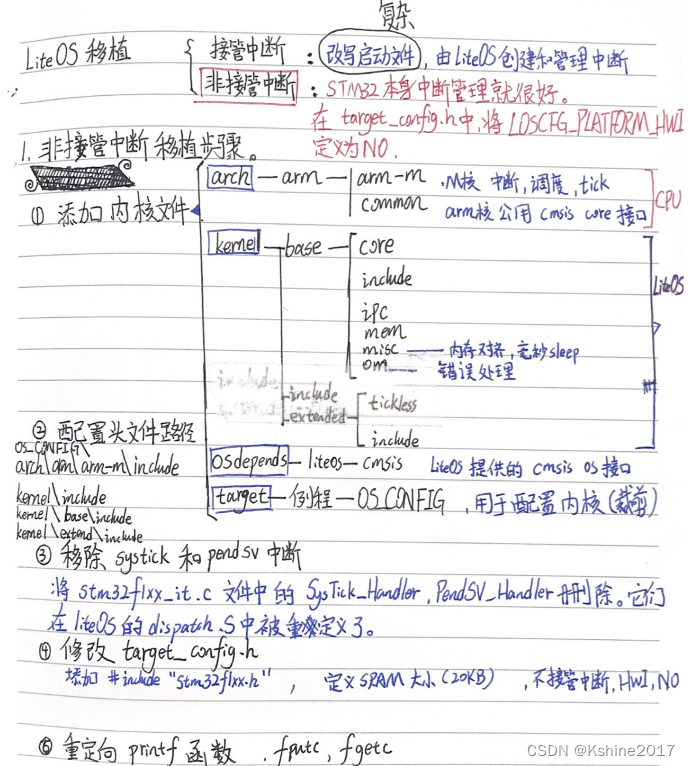 复杂
LiteOS 移植
接管中断 : 改写启动文件, 由LiteOS创建和管理中断
非接管中断 : STM32 本身中断管理就很好。
在 target_config.h中,将 LOSCFG_PLATFORM_HWI
定义为NO.
1. 非接管中断 移植步骤。
① 添加内核文件
arch — arm — arm-m .M核 中断,调度,tick
common arm核公用 cmsis core 接口
CPU
kernel — base — core
include
ipc
mem
misc —— 内存对齐,毫秒sleep
om —— 错误处理
LiteOS
include
extended — tickless
include
② 配置头文件路径
OS_CONFIG\
arch\arm\arm-m\include
kernel\include
kernel\base\include
kernel\extend\include
OSdepends — liteos — cmsis LiteOS 提供的 cmsis os接口
target — 例程 — OS_CONFIG ,用于配置内核(裁剪)
③ 移除 systick 和 pendsv 中断
将 stm32f1xx_it.c 文件中的 SysTick_Handler, PendSV_Handler 删除。它们
在liteOS的dispatch.S中被重定义了。
④ 修改 target_config.h
添加 #include "stm32f1xx.h" , 定义 SRAM 大小(20KB) ,不接管中断,HWI,NO
⑤ 重定向 printf 函数 . fputc, fgetc
CSDN @Kshine2017